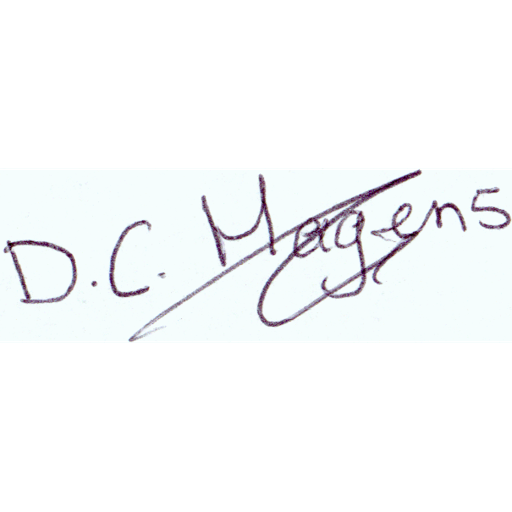 D.C. Magens